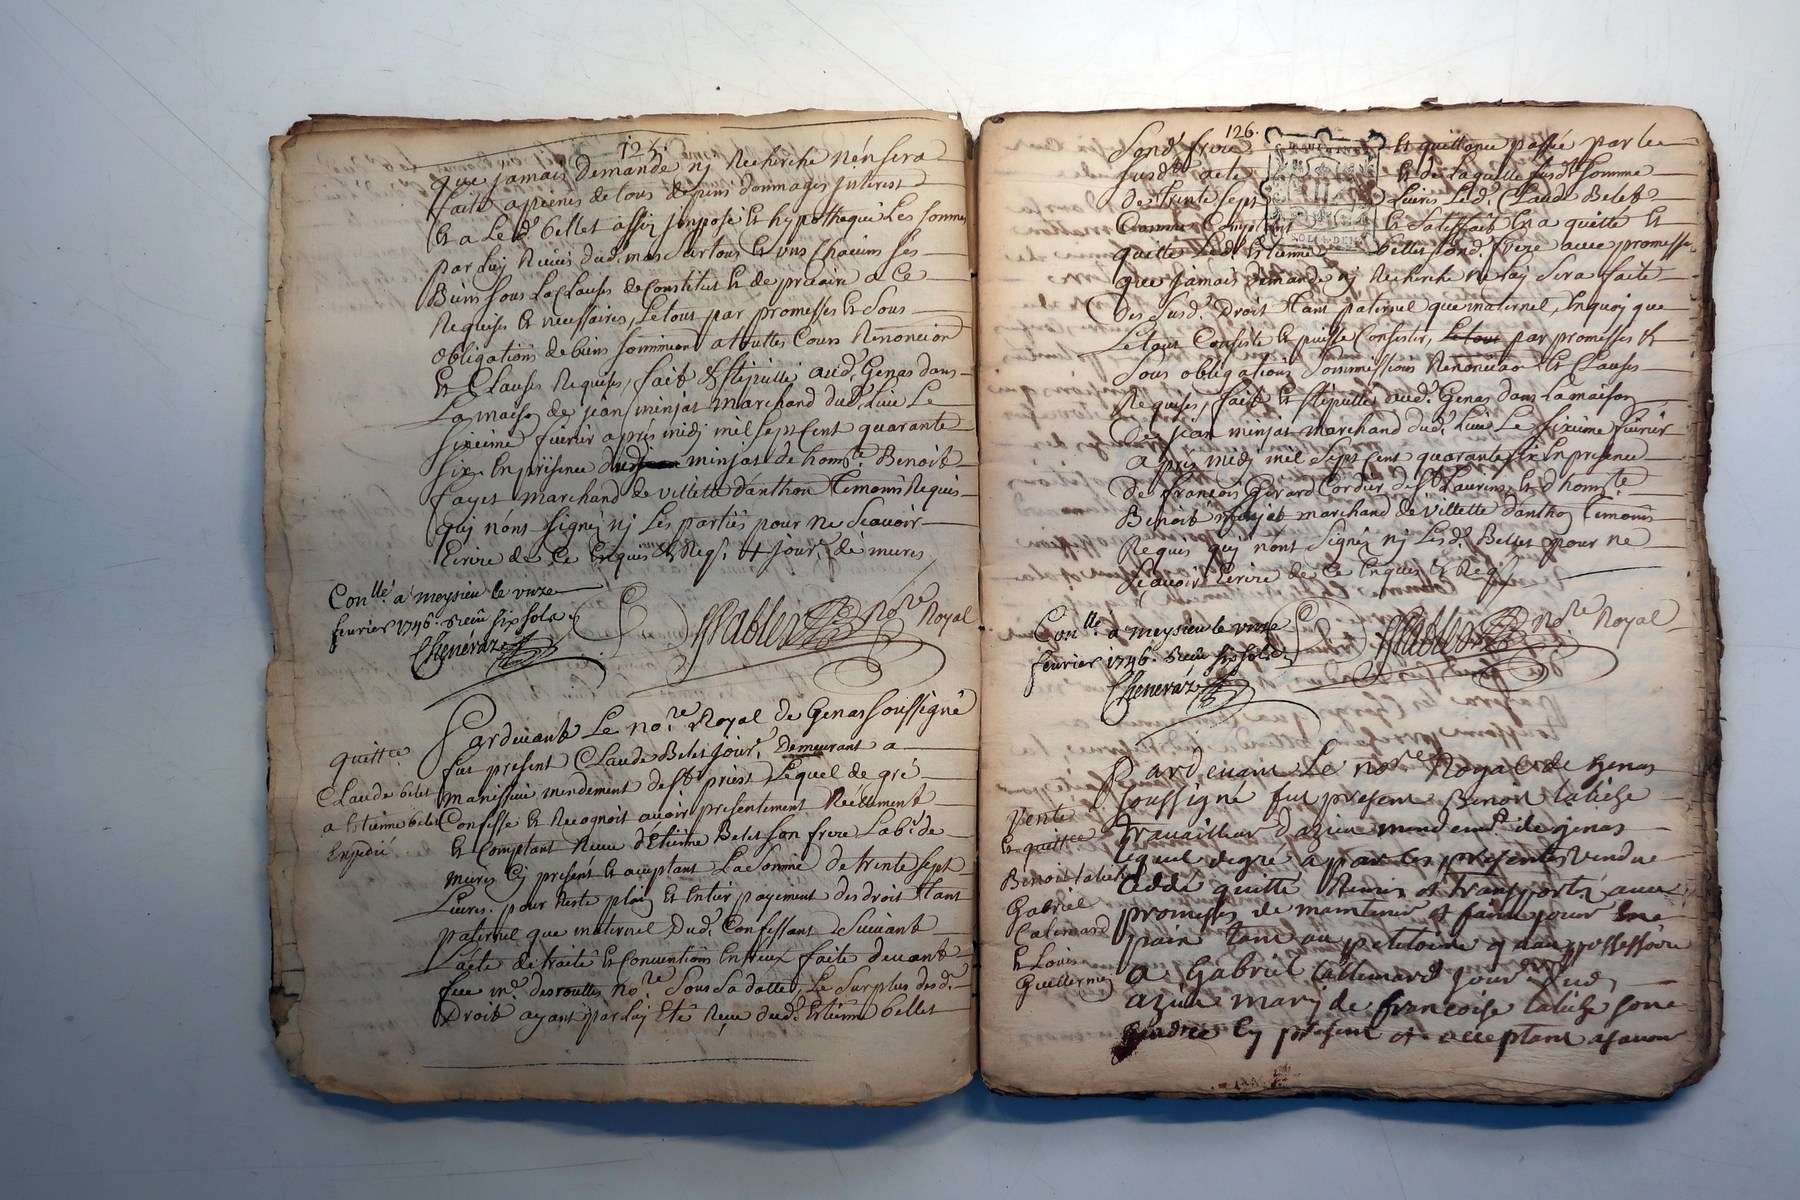 125.
que jamais demande nj Recherche n'en sera
faite a peines de tous depens dommages Interest
Et a Led. bellet assoy Imposé Et hypothequé Les sommes
par Luy Reçues dud. mas sur tous Et uns Chacuns ses
Biens sous La Clauses de Constitut Et de precaire a Ce
Requises Et necessaires, Letout par promesses Et Sous
obligations de biens Soummions a touttes Cours Renoncion
Et Clauses Requises, fait & stipullé aud. Genas dans
La maison de jean minjat marchand dud. Lieu Le
sixieme fevrier apres midi mil sept Cent quarante
six En presence dud. minjat de hons.te Benoit
fayet marchand de villette d'anthon temoins Requis
quj n'ont signéz nj Les parties pour ne Scavoir
Ecrire de Ce Enquis Et Reqs. + jour.r de mures
Con.llé a meysieu le unze
fevrier 1746. Receu six sols
Chenéraz
Pabler no.re Royal
quitt.ce
Claude belet
a Estienne belet
Expedié
Pardevant Le no.re Royal de Genas soussigné
fut present Claude Belet jour.r Demeurant a
manissieu mendement de S.t priest Lequel de gré
Confesse Et Recognoit avoir presentement Réellement
Et Comptant Reçue d'Etienne Belet son frere Lab.r de
mures Cy present Et acceptant La Somme de trente sept
Livres pour Reste plain Et Entier payement des droit tant
paternel que maternel Dud. Confessant Suivant
L'acte de traité Et Conventions Entreux faite devant
feu m.e desrouttes no.re Sous Sa datte, Le Surplus desd.
Droit ayant par Luy Eté Reçu dud. Estienne bellet
126.
Sond. frere Et quittance passée par Le
susd. acte Et de Laquelle susd. somme
de trente sept Livres Led. Claude Belet
Comme Content Et Satisfait En a quitté Et
quitte Led. Estienne bellet sond. frere avec promesse
que jamais demande nj Recherche ne Luy Sera faite
Des Susd. Droit tant paternel que maternel, En quoy que
Letout Consiste Et puisse Consister, Le tout par promesses Et
Sous obligations Soummissions Renonciaon Et Clauses
Requises, fait Et stipullé aud. Genas dans La maison
De jean minjat marchand dud. Lieu Le sixieme fevrier
apres midi mil sept Cent quarante six En presence
de francois Girard Cordier de S.t Laurens Et d'hons.te
Benoit marchand de villette d'anthon temoins
Requis quj n'ont Signéz nj Lesd. Bellet pour ne
Scavoir Ecrire de Ce Enquis Et Reqs
Con.llé a meysieu le unze
fevrier 1746. Receu six sols
Chenéraz
Pabler no.re Royal
vente
Et quittce
Benoit
Gabriel
Calemard
Et Louis
Guillermin
Pardevant Le no.re Royal de Genas
soussigné fut present Benoit
travailleur d'azieu mendem.t de genas
lequel de gré a par les presentes vendue
cedde quitté Remis et transporté avec
promesses de maintenir et faire jouir
paix tant au petitoire qu'au possessoire
a Gabriel Callemard jour.r dud.
azieu mary de francoise son
gendre Cy present et acceptant asavoir